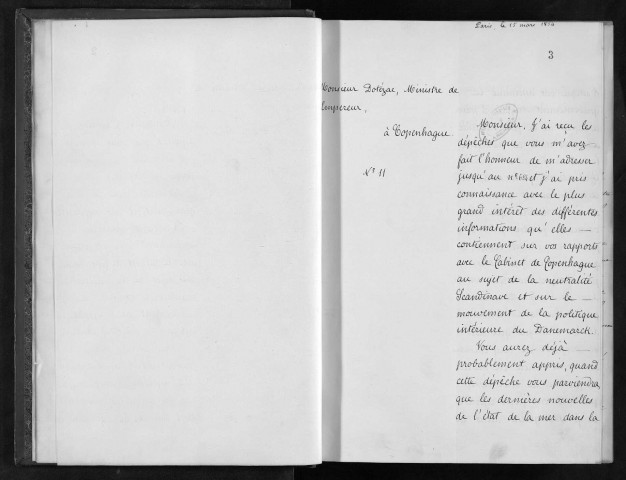 Paris, le 15 mars 1854
3
Monsieur Dotézac, Ministre de
l'empereur,
à Copenhague
N° 11
Monsieur, J'ai reçu les
dépêches que vous m'avez
fait l'honneur de m'adresser
jusqu'au et j'ai pris
connaissance avec le plus
grand intérêt des différentes
informations qu'elles —
contiennent sur vos rapports
avec le Cabinet de Copenhague
au sujet de la neutralité
Scandinave et sur le —
mouvement de la politique
intérieure du Danemarck.
Vous aurez déjà —
probablement appris, quand
cette dépêche vous parviendra,
que les dernières nouvelles
de l'état de la mer dans la